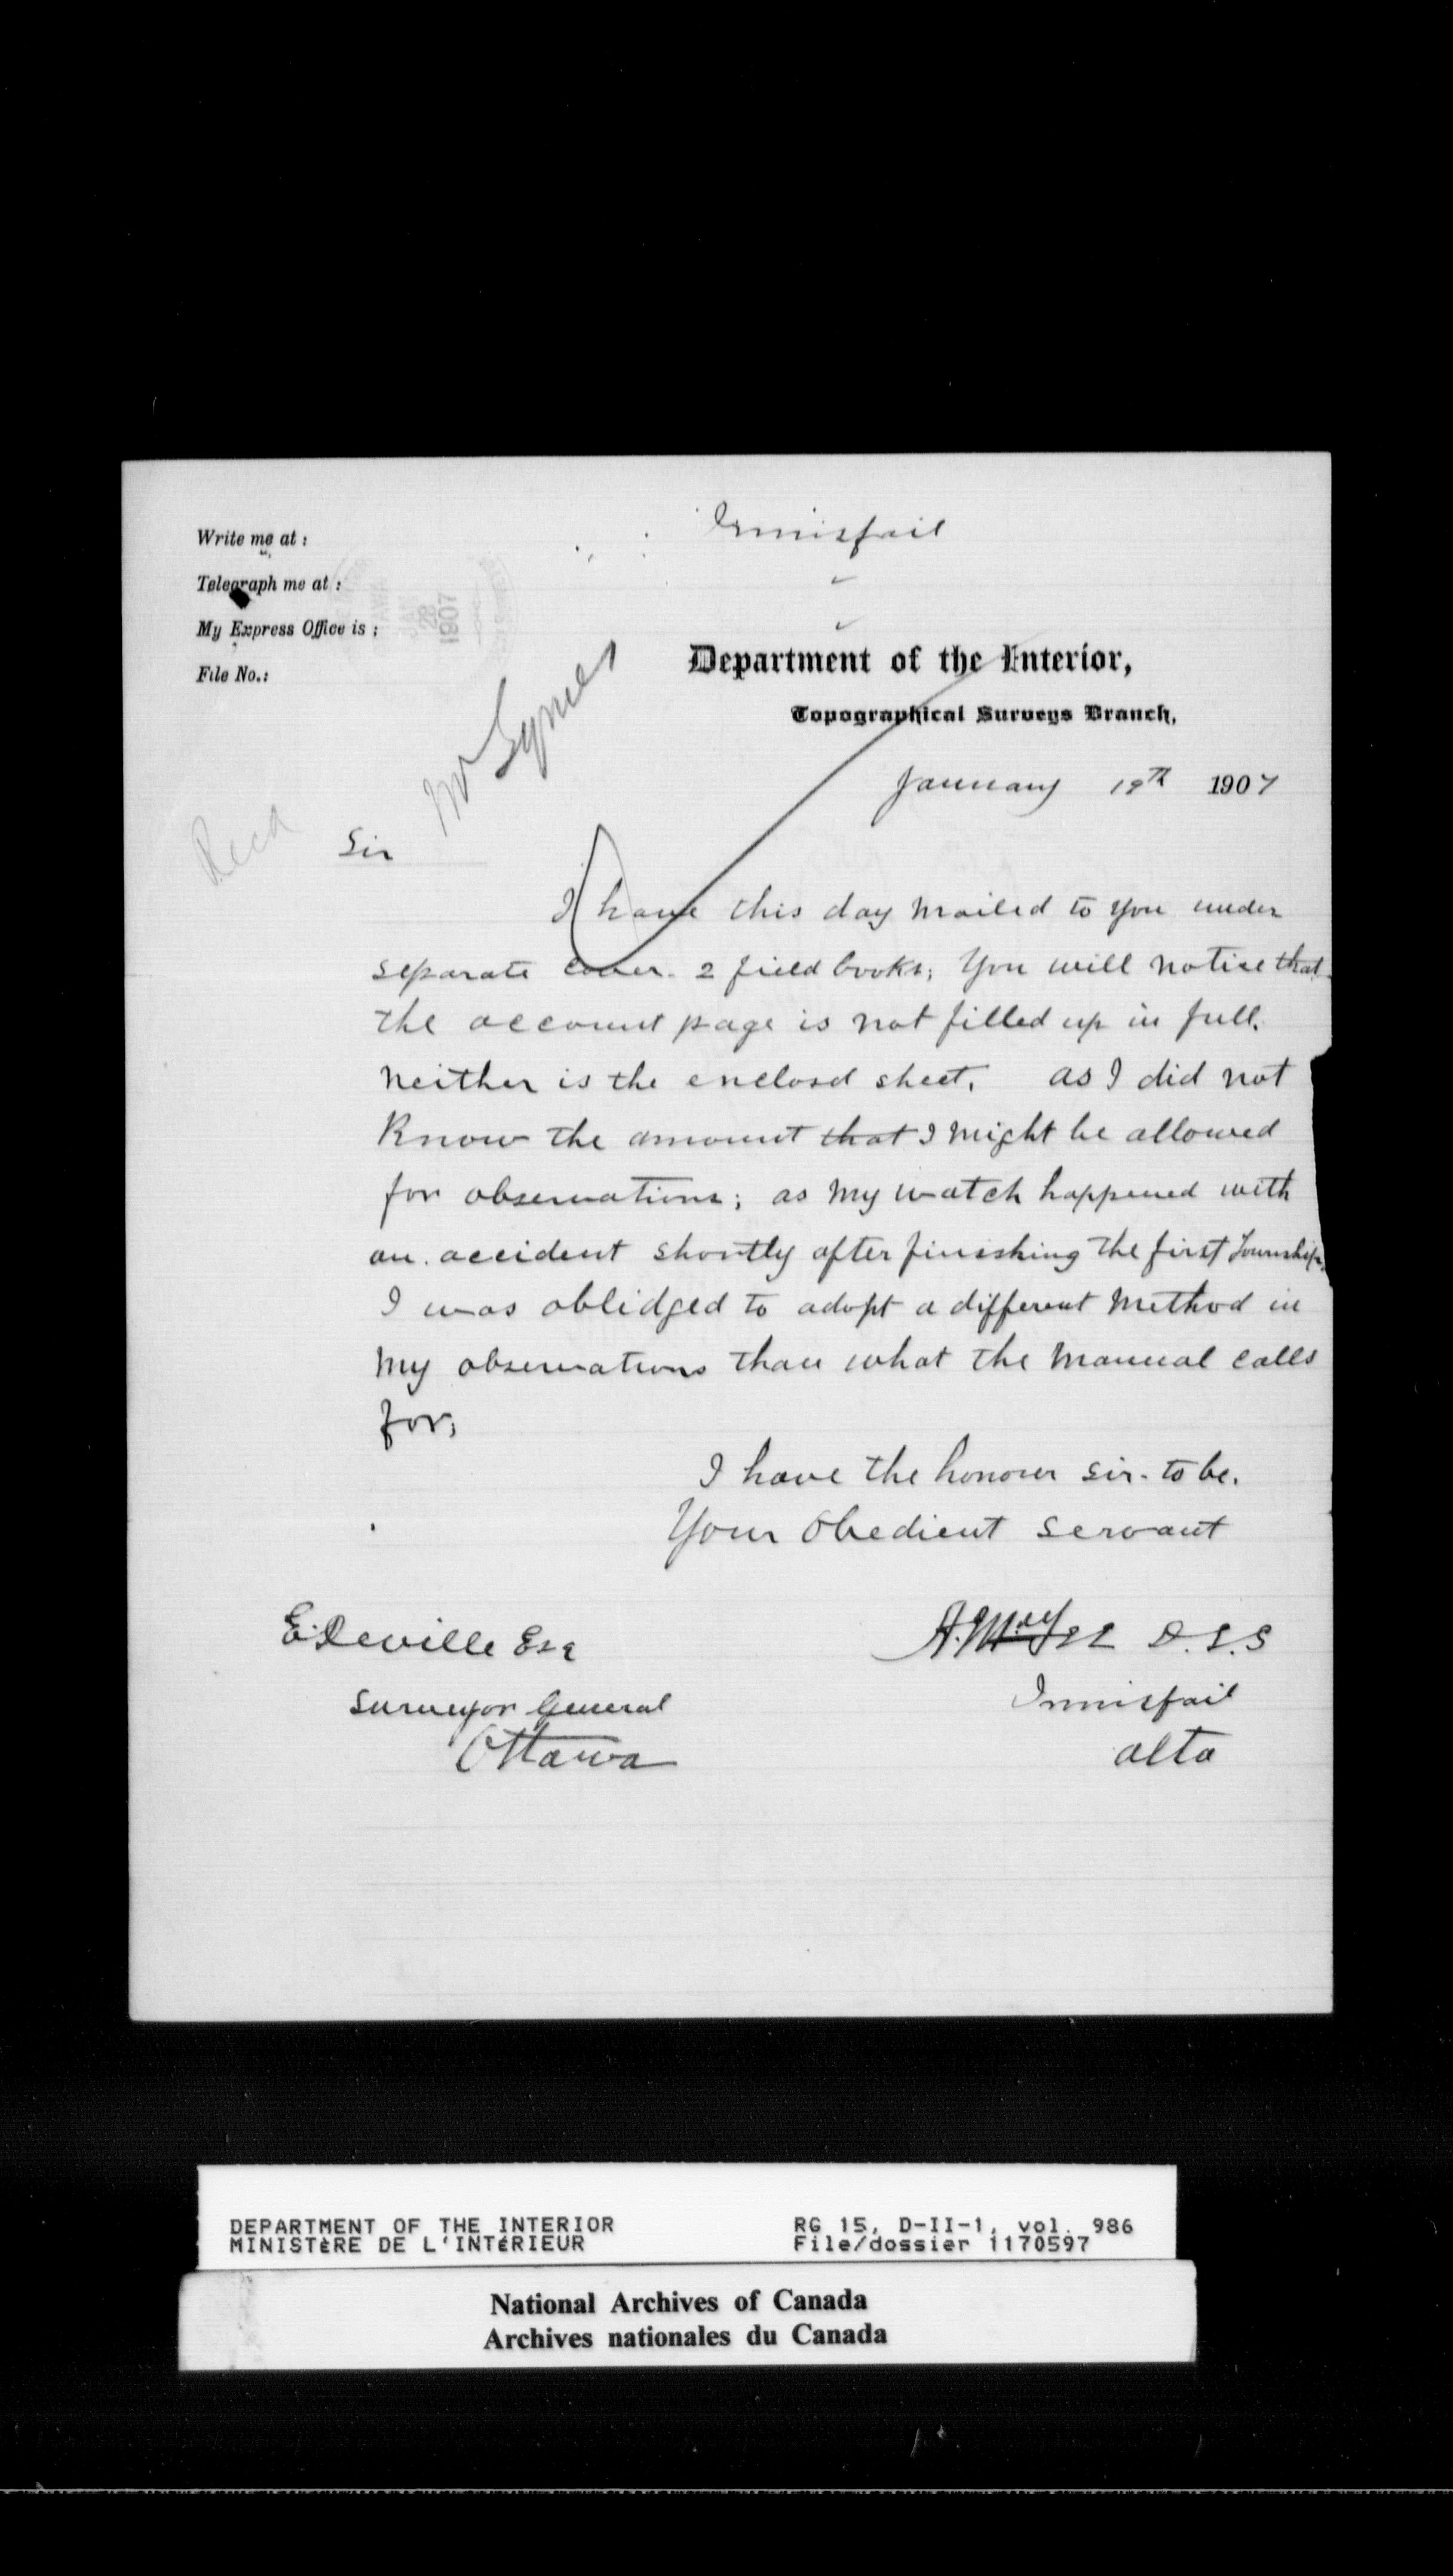 Innisfail
Write me at :
Telegraph me at :
My Express Office is :
File No.:
1907
Department of the Interior,
Topographical Surveys Branch,
January 19th 1907
Recd
Sir
I have this day mailed to you under
separate cover. 2 field books; You will notice that
the account page is not filled up in full.
neither is the enclosd sheet. as I did not
Know the amount that I might be allowed
for observations; as my watch happened with
an. accident shortly after finishing the first Township,
I was oblidged to adopt a different method in
my observations than what the manual calls
for;
I have the honour sir. to be.
Your Obedient servant
E. Deville Esq
A. D.L.S
Surveyor General
Innisfail
Ottawa
alta
DEPARTMENT OF THE INTERIOR
MINISTÈRE DE L'INTÉRIEUR
RG 15, D-II-1, vol. 986
File/dossier 1170597
National Archives of Canada
Archives nationales du Canada